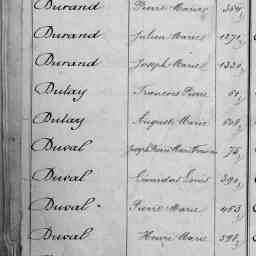 Durand Pierre Marie 354,
Durand Julien Marie 1271,
Durand Joseph Marie 1330,
Dutay François Pierre 61,
Dutay Auguste Marie 508,
Duval Joseph Marie 75,
Duval Louis 390,
Duval Pierre Marie 453,
Duval Henri Marie 598,